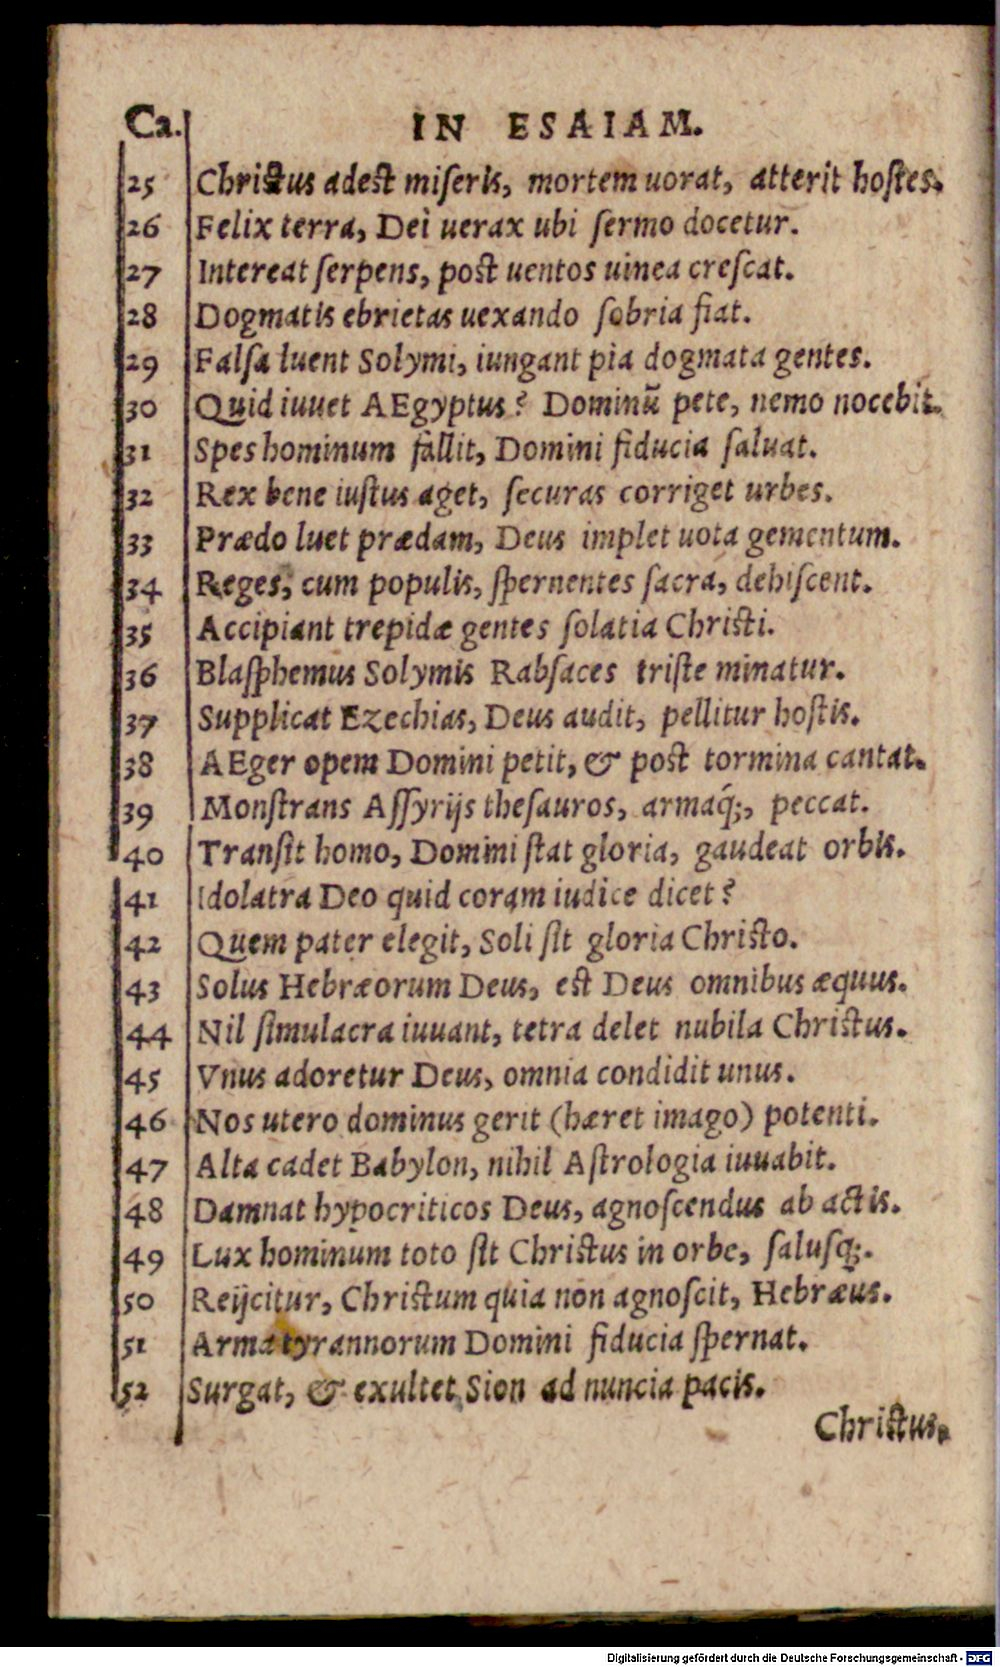 Ca. IN ESAIAM.
25 Christus adest miseris, mortem uorat, atterit hostes.
26 Felix terra, Dei uerax ubi sermo docetur.
27 Intereat serpens, post uentos uinea crescat.
28 Dogmatis ebrietas uexando sobria fiat.
29 Falsa luent Solymi, iungant pia dogmata gentes.
30 Quid iuuet AEgyptus? Dominū pete, nemo nocebit.
31 Spes hominum fallit, Domini fiducia saluat.
32 Rex bene iustus aget, securas corriget urbes.
33 Prædo luet prædam, Deus implet uota gementum.
34 Reges, cum populis, spernentes sacra, dehiscent.
35 Accipiant trepidæ gentes solatia Christi.
36 Blasphemus Solymis Rabsaces triste minatur.
37 Supplicat Ezechias, Deus audit, pellitur hostis.
38 AEger opem Domini petit, & post tormina cantat.
39 Monstrans Assyrijs thesauros, armaq́;, peccat.
40 Transit homo, Domini stat gloria, gaudeat orbis.
41 Idolatra Deo quid coram iudice dicet?
42 Quem pater elegit, Soli sit gloria Christo.
43 Solus Hebræorum Deus, est Deus omnibus æquus.
44 Nil simulacra iuuant, tetra delet nubila Christus.
45 Vnus adoretur Deus, omnia condidit unus.
46 Nos utero dominus gerit (hæret imago) potenti.
47 Alta cadet Babylon, nihil Astrologia iuuabit.
48 Damnat hypocriticos Deus, agnoscendus ab actis.
49 Lux hominum toto sit Christus in orbe, salusq́;.
50 Reijcitur, Christum quia non agnoscit, Hebræus.
51 Arma tyrannorum Domini fiducia spernat.
52 Surgat, & exultet Sion ad nuncia pacis.
Christus.
Digitalisierung gefördert durch die Deutsche Forschungsgemeinschaft - DFG